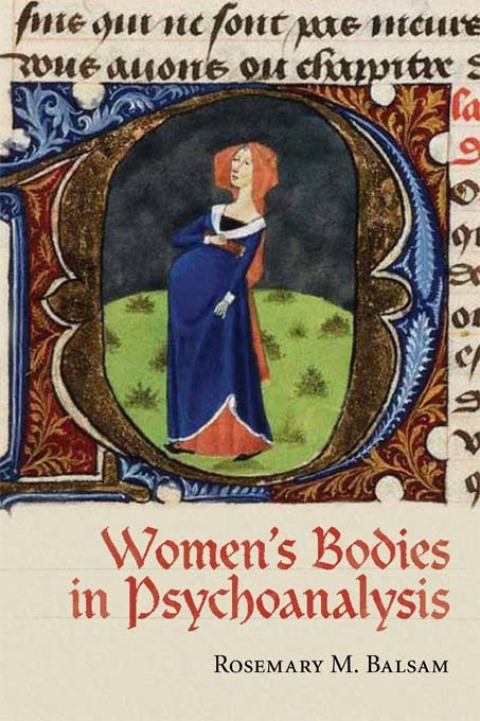 qui ne sont pas
auons ou chappitre
la
Women's Bodies
in Psychoanalysis
Rosemary M. Balsam